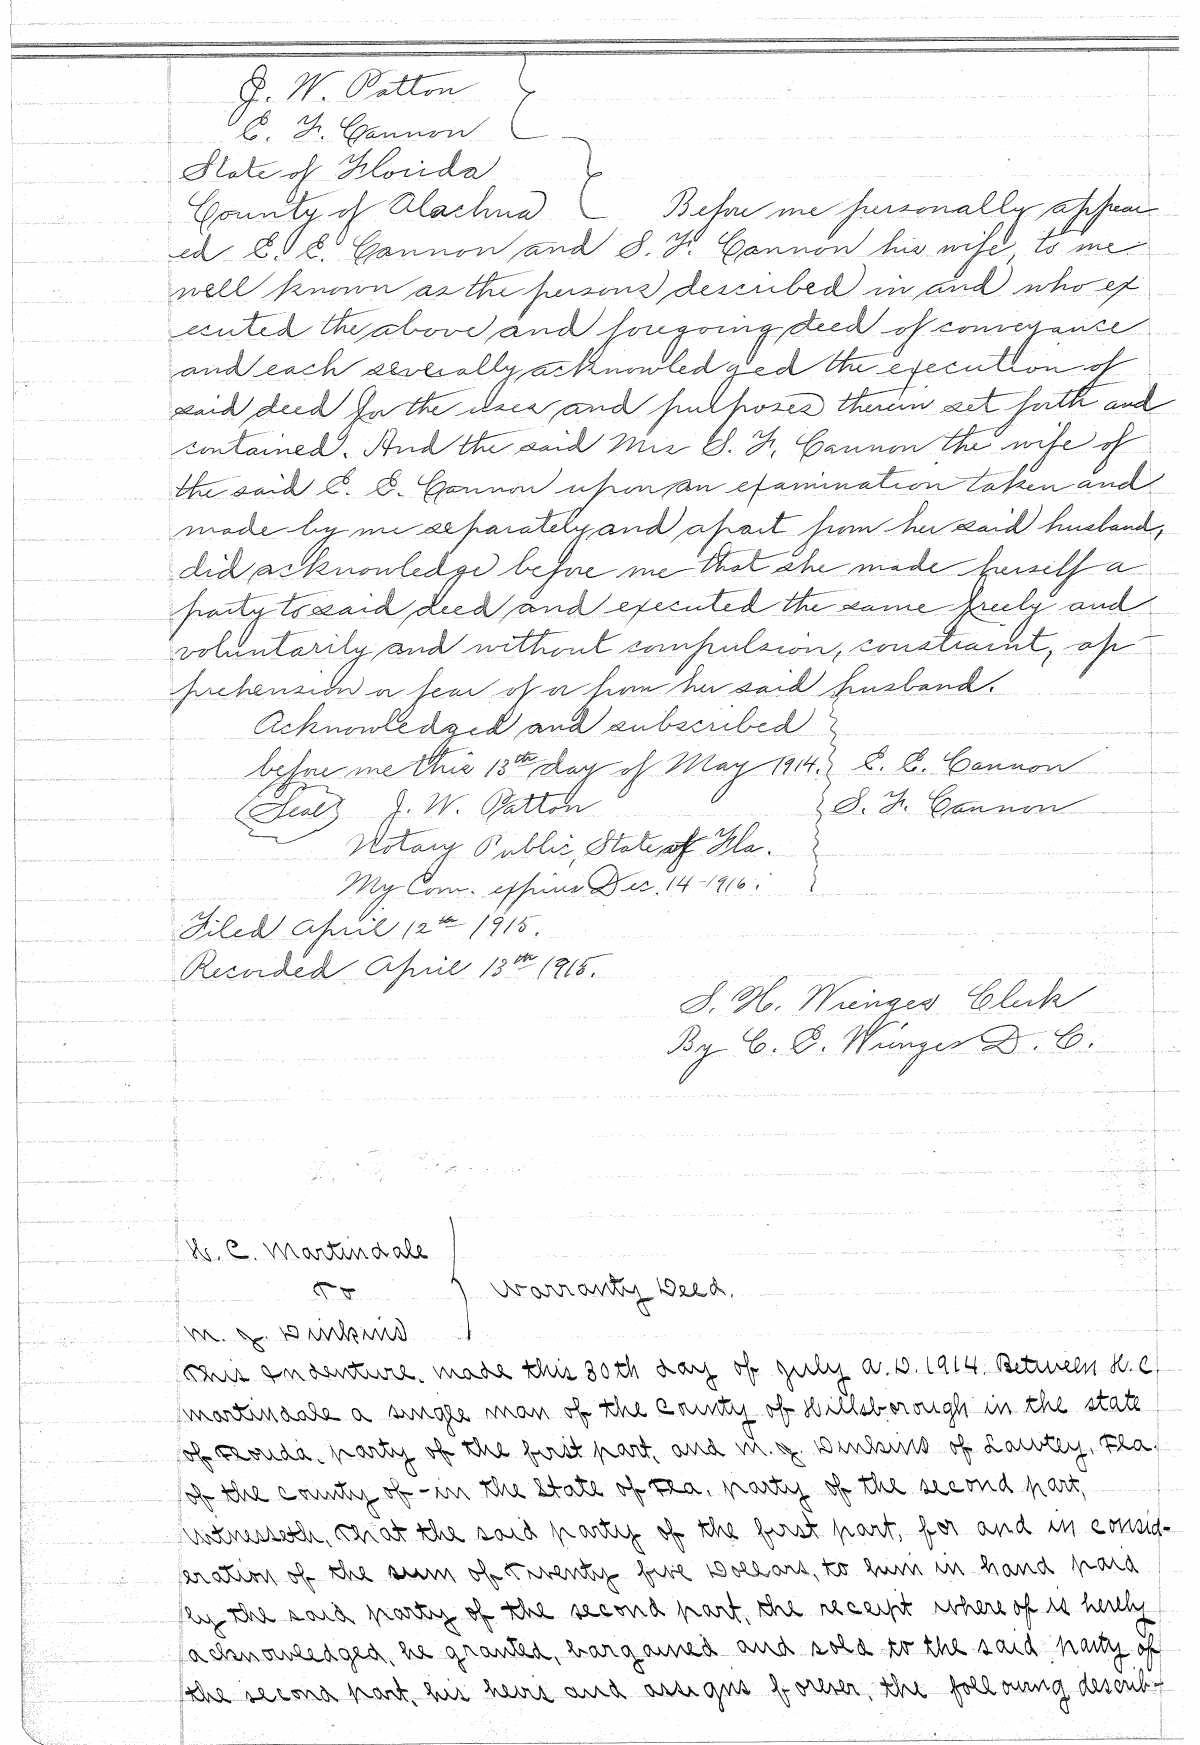 J. W. Patton
C. F. Cannon
State of Florida
County of Alachua Before me personally appear
ed E. E. Cannon and S. F. Cannon his wife, to me
well known as the persons described in and who ex
ecuted the above and foregoing deed of conveyance
and each severally acknowledged the execution of
said deed for the uses and purposes therein set forth and
contained. And the said Mrs S. F. Cannon the wife of
the said E. E. Cannon upon an examination taken and
made by me separately and apart from her said husband,
did acknowledge before me that she made herself a
party to said deed and executed the same freely and
voluntarily and without compulsion, constraint, ap-
prehension or fear of or from her said husband.
Acknowledged and subscribed
before me this 13th day of May 1914. E. E. Cannon
(Seal) J. W. Patton S. F. Cannon
Notary Public, State of Fla.
My Com. expires Dec. 14-1916.
Filed April 12th 1915.
Recorded April 13th 1915.
S. H. Wienges Clerk
By C. E. Wienges D. C.
H. C. Martindale
To Warranty Deed.
M. J. Dinkins
This Indenture, made this 30th day of July A. D. 1914. Between H. C.
Martindale a single man of the County of Hillsborough in the state
of Florida, party of the first part, and M. J. Dinkins of Lawtey, Fla.
of the county of - in the State of Fla, party of the second part,
Witnesseth, That the said party of the first part, for and in consid-
eration of the sum of Twenty five Dollars, to him in hand paid
by the said party of the second part, the receipt where of is hereby
acknowledged, he granted, bargained and sold to the said party of
the second part, his heirs and assigns forever, the following describ-